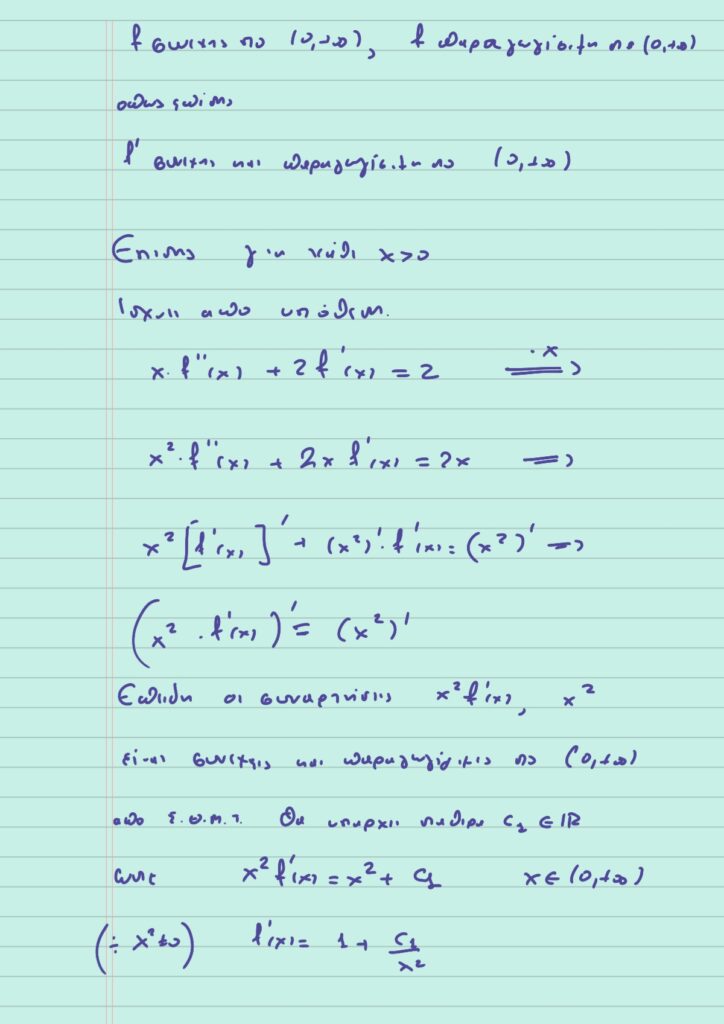 f συνεχης στο (0,+∞), f παραγωγισιμη στο (0,+∞)
οπως επισης
f' συνεχης και παραγωγισιμη στο (0,+∞)
Επισης για κάθε x>0
Ισχυει απο υπόθεση.
x·f''(x) + 2f'(x) = 2 =·x=>
x²·f''(x) + 2x f'(x) = 2x =>
x²[f'(x)]' + (x²)'·f'(x) = (x²)' =>
(x²·f'(x))' = (x²)'
Επειδη οι συναρτησεις x²f'(x), x²
ειναι συνεχεις και παραγωγισιμες στο (0,+∞)
απο Σ.Θ.Μ.Τ. Θα υπαρχει σταθερα c₁ ∈ ℝ
ωστε x²f'(x) = x² + c₁ x∈(0,+∞)
(÷ x²≠0) f'(x) = 1 + c₁/x²